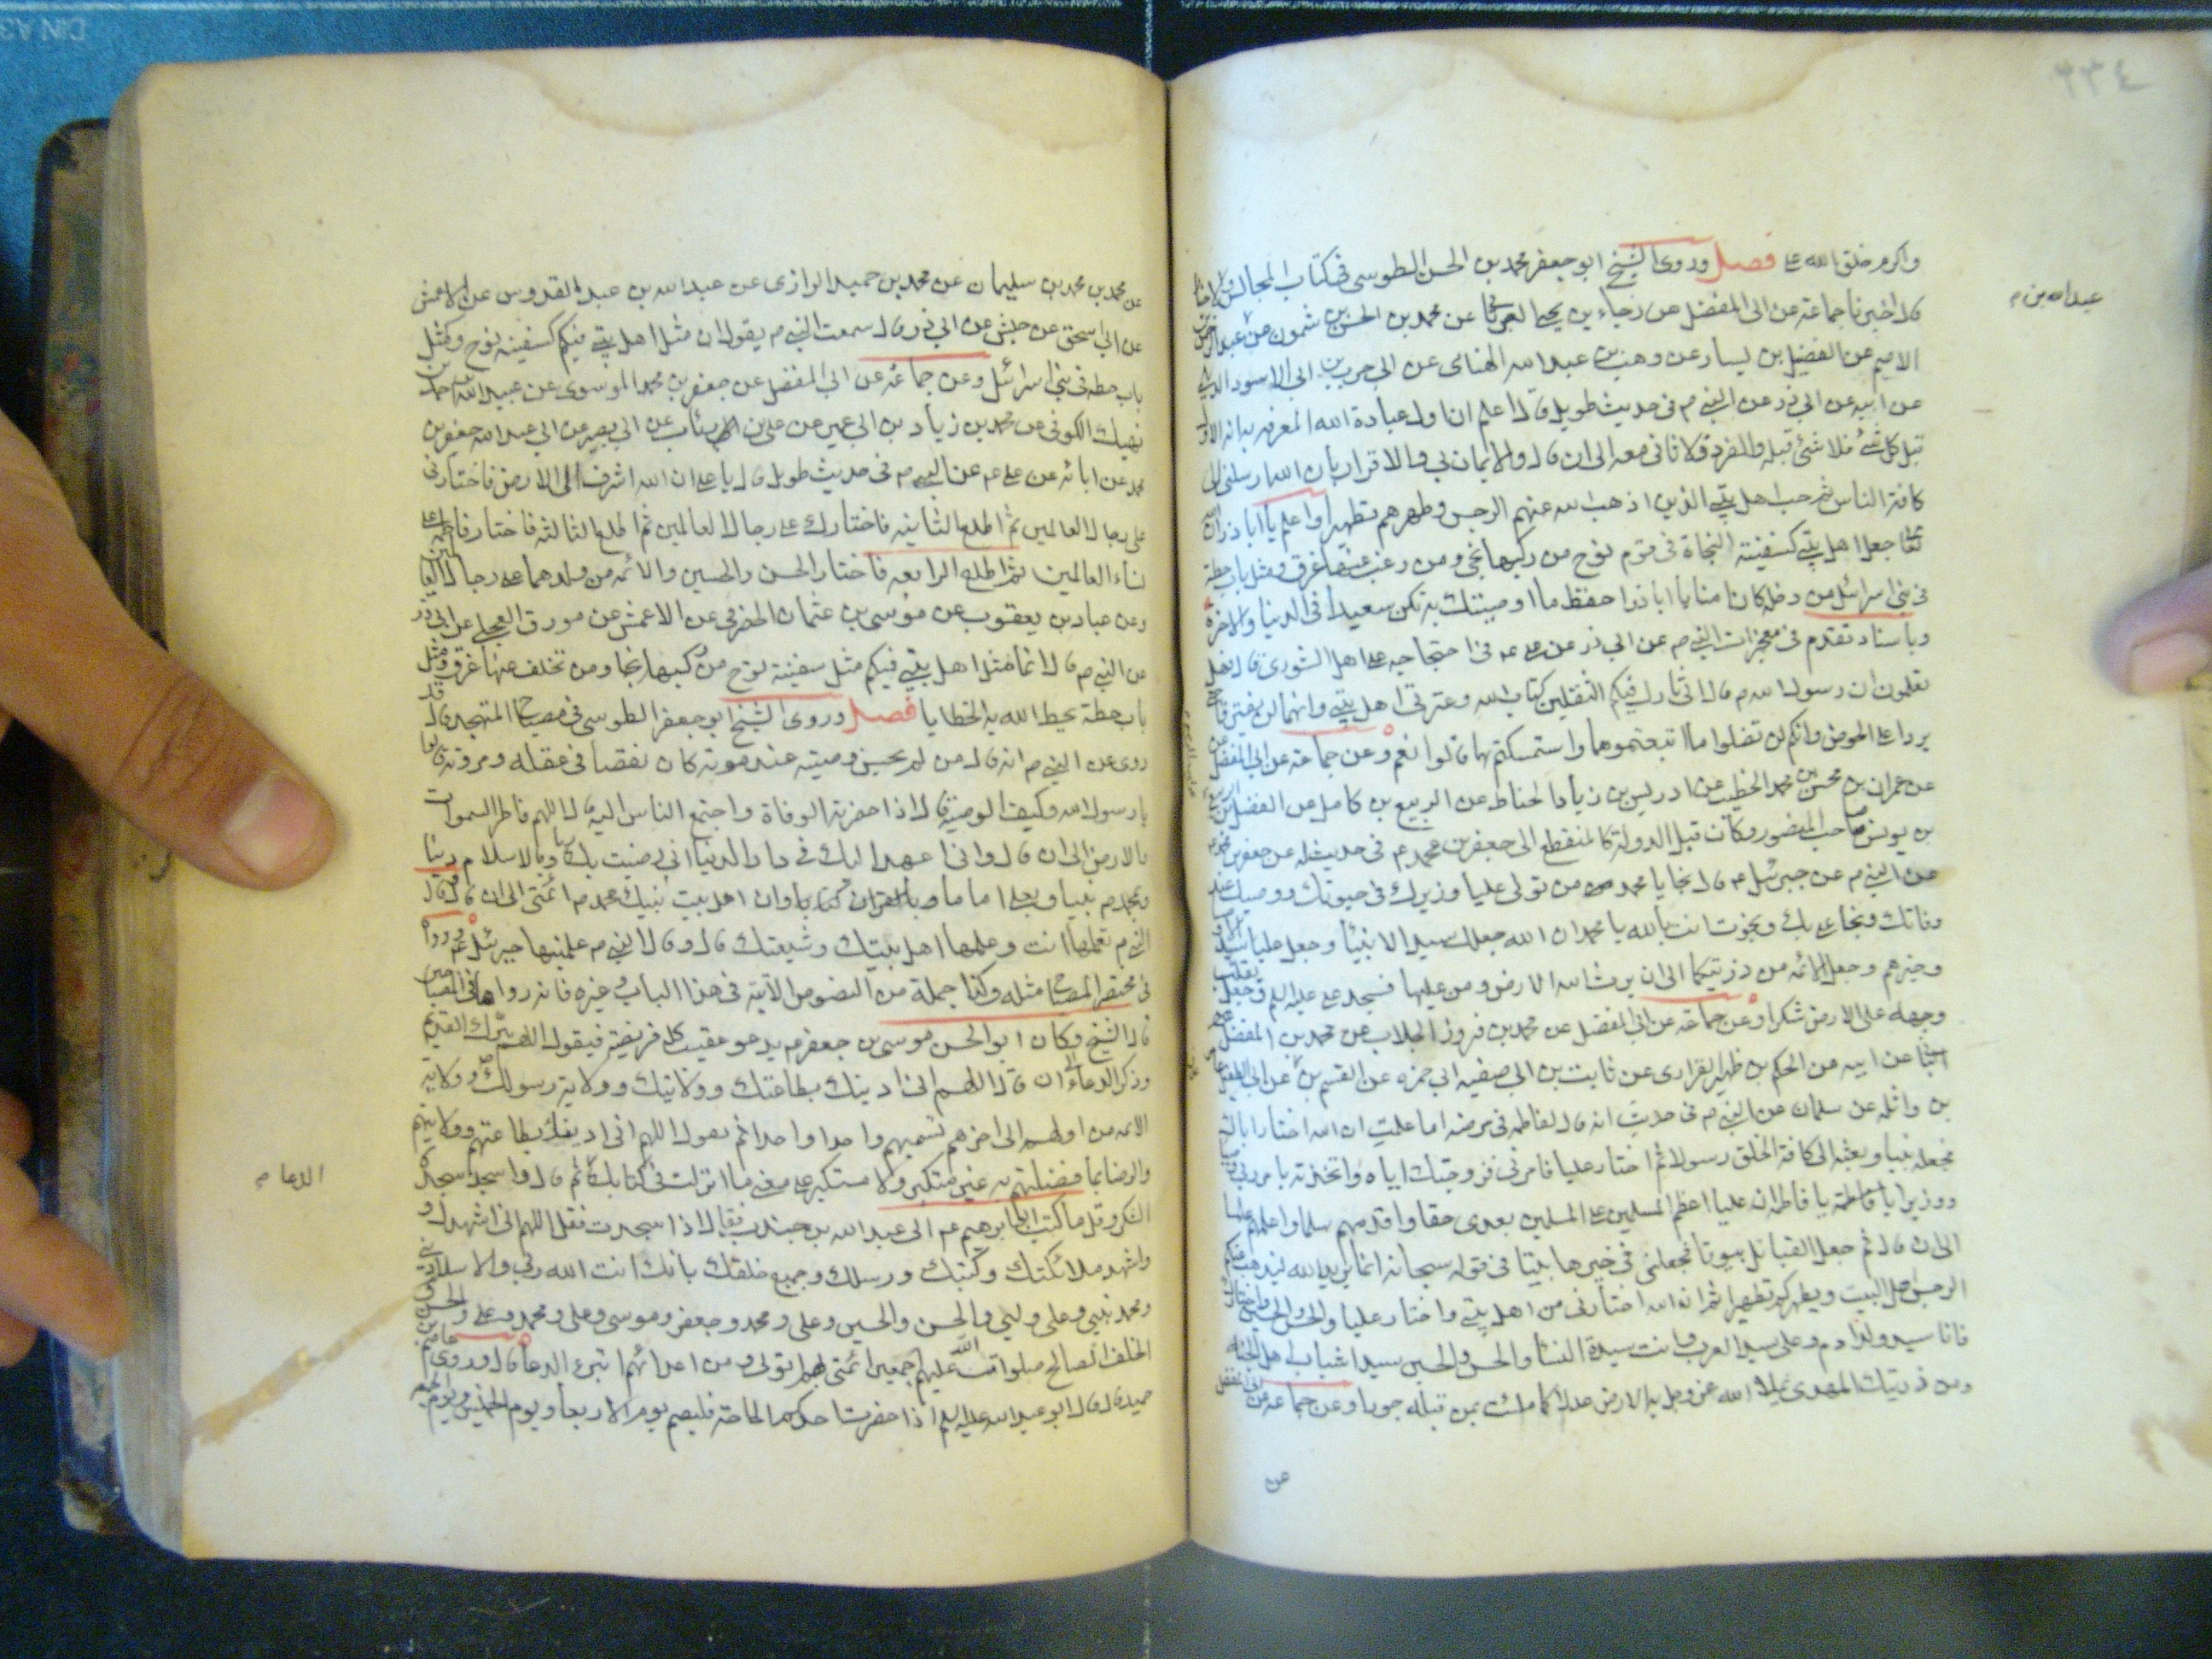 ٣٣٤
واكرم خلق الله على فصل وروى الشيخ ابو جعفر محمد بن الحسن الطوسى فى كتاب المجالس
قال اخبرنا جماعة عن ابى المفضل عن رجاء بن يحيى عن محمد بن الحسن بن شمون عن عبد الله بن عبد الرحمن
عبد الله بن م
الاصم عن الفضيل بن يسار عن وهب بن عبد الله الهنائى عن ابى حرب بن ابى الاسود الدئلى
عن ابيه عن ابى ذر عن النبى ص فى حديث طويل قال اعلم ان اول عبادة الله المعرفه به انه الاول
قبل كل شئ فلا شئ قبله والفرد فلا ثانى معه الى ان قال والايمان بى والاقرار بان الله ارسلنى الى
كافة الناس ثم حب اهل بيتى الذين اذهب الله عنهم الرجس وطهرهم تطهيرا واعلم يا ابا ذر ان الله
تعالى جعل اهل بيتى كسفينة النجاة فى قوم نوح من ركبها نجى ومن رغب عنها غرق ومثل باب حطة
فى بنى اسرائيل من دخله كان امنا يا ابا ذر احفظ ما اوصيتك به تكن سعيدا فى الدنيا والاخرة
وباسناد تقدم فى معجزات النبى ص عن ابى ذر عن على ع فى احتجاجه على اهل الشورى قال فهل
تعلمون ان رسول الله ص قال انى تارك فيكم الثقلين كتاب الله وعترتى اهل بيتى وانهما لن يفترقا حتى
يردا على الحوض وانكم لن تضلوا ما اتبعتموهما واستمسكتم بهما قالوا نعم وعن جماعة عن ابى المفضل
عن عمران بن محسن بن محمد الخطيب عن ادريس بن زياد الحناط عن الربيع بن كامل عن الفضل بن الربيع
بن يونس صاحب المنصور وكان قبل الدولة كالمنقطع الى جعفر بن محمد ع فى حديث له عن جعفر بن محمد
عن النبى ص عن جبرئيل ع قال نجا يا محمد من تولى عليا وزيرك فى حيوتك ووصيك عند
وفاتك ونجا على بك ونجوت انت بالله يا محمد ان الله جعلك سيد الانبيأ وجعل عليا سيد الاوصيا
وخيرهم وجعل الائمه من ذريتكما الى ان يرث الله الارض ومن عليها فسجد على عليه السلم وجعل يقلب
وجهه على الارض شكرا وعن جماعة عن ابى المفضل عن محمد بن فيروز الجلاب عن محمد بن المفضل
عن ابيه عن الحكم بن ظهير الفزارى عن ثابت بن ابى صفيه ابى حمزه عن القسم بن عن ابى الطفيل
بن واثله عن سلمان عن النبى ص فى حديث انه قال لفاطمه فى مرضه اما علمت ان الله اختار اباك
فجعله نبيا وبعثه الى كافة الخلق رسولا ثم اختار عليا فامرنى فزوجتك اياه واتخذته بامر ربى
ووزيرا يا فاطمة يا فاطمه ان عليا اعظم المسلمين على المسلمين بعدى حقا واقدمهم سلما واعلمهم علما
الى ان قال ثم جعل القبائل بيوتا فجعلنى فى خيرها بيتا فى قوله سبحانه انما يريد الله ليذهب عنكم
الرجس اهل البيت ويطهركم تطهيرا ثم ان الله اختارنى من اهل بيتى واختار عليا والحسن والحسين واختارك
فانا سيد ولد ادم وعلى سيد العرب وانت سيدة النسأ والحسن والحسين سيدا شباب اهل الجنة
ومن ذريتك المهدى يملا الله عز وجل به الارض عدلا كما ملئت بمن قبله جورا وعن جماعة عن ابى المفضل
عن
عن محمد بن محمد بن سليمان عن محمد بن حميد الرازى عن عبد الله بن عبد القدوس عن الاعمش
عن ابى اسحق عن حنش عن ابى ذر قال سمعت النبى ص يقول ان مثل اهل بيتى فيكم كسفينه نوح وكمثل
باب حطه فى بنى اسرائيل وعن جماعة عن ابى المفضل عن جعفر بن محمد الموسوى عن عبيد الله احمد بن
نهيك الكوفى عن محمد بن زياد بن ابى عمير عن على بن رئاب عن ابى بصير عن ابى عبد الله جعفر بن
محمد عن ابائه عن على ع عن النبى ص فى حديث طويل قال يا على ان الله اشرف الى الارض فاختارنى
على رجال العالمين ثم اطلع الثانيه فاختارك على رجال العالمين ثم اطلع الثالثه فاختار فاطمه على
نساء العالمين ثم اطلع الرابعه فاختار الحسن والحسين والائمه من ولدهما على رجال العالمين
وعن عباد بن يعقوب عن موسى بن عثمان الحضرمى عن الاعمش عن مورق العجلى عن ابى ذر
عن النبى ص قال انما مثل اهل بيتى فيكم مثل سفينة نوح من ركبها نجا ومن تخلف عنها غرق ومثل
باب حطة يحط الله به الخطايا فصل وروى الشيخ ابو جعفر الطوسى فى مصباح المتهجد قال قد
روى عن النبى ص انه قال من لم يحسن وصيته عند موته كان نقصا فى عقله ومروته قالوا
يا رسول الله وكيف الوصية قال اذا حضرته الوفاة واجتمع الناس اليه قال اللهم فاطر السموات
والارض الى ان قال وانى اعهد اليك فى دار الدنيا انى رضيت بك ربا وبالاسلام دينا
وبمحمد ص نبيا وبعلى اماما وبالقران كتابا وان اهل بيت نبيك محمد ص ائمتى الى ان قال قال
النبى ص تعلمها انت وعلمها اهل بيتك وشيعتك قال وقال النبى ص علمنيها جبرئيل ع وروى
فى مختصر المصباح مثله وكذا جملة من النصوص الاتية فى هذا الباب وغيره فانه رواها فى المصباحين
قال الشيخ وكان ابو الحسن موسى بن جعفر ع يدعو عقيب كل فريضة فيقول اللهم ببرك القديم
وذكر الدعاء الى ان قال اللهم انى ادينك بطاعتك وولايتك وولاية رسولك وولاية
الائمه من اولهم الى اخرهم تسميهم واحدا واحدا ثم يقول اللهم انى ادينك بطاعتهم وولايتهم
والرضا بما فضلتهم به غير متكبر ولا مستكبر على معنى ما انزلت فى كتابك ثم قال واسجد سجدة
الدعا م
الشكر وقل ما كتب ابو ابرهيم ع الى عبد الله بن جندب فقال اذا سجدت فقل اللهم انى اشهدك و
واشهد ملائكتك وكتبك ورسلك وجميع خلقك بانك انت الله ربى والاسلام دينى
ومحمد نبيى وعلى وليى والحسن والحسين وعلى ومحمد وجعفر وموسى وعلى ومحمد وعلى والحسن و
الخلف الصالح صلوات الله عليهم اجمعين ائمتى بهم اتولى ومن اعدائهم اتبرء الدعا قال وروى عاصم بن
حميد قال قال ابو عبد الله عليه السلم اذا حضرت احدكم الحاجة فليصم يوم الاربعأ ويوم الخميس ويوم الجمعه